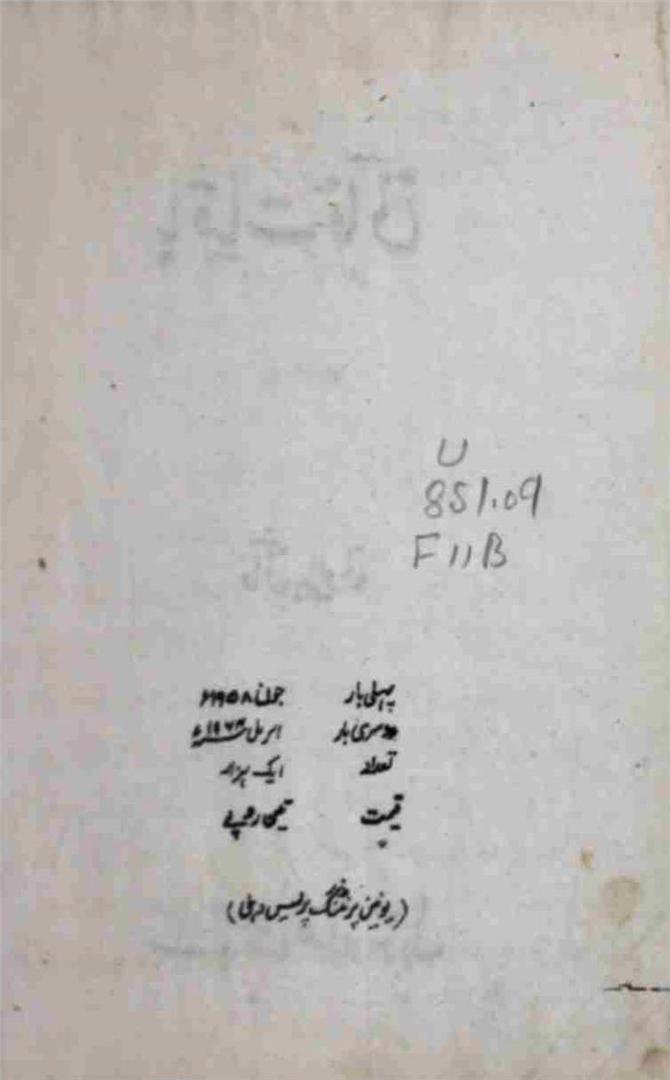 U
851.09
F11B
پہلی بار جون ۱۹۵۸ء
دوسری بار اپریل ۱۹۶۳ء
تعداد ایک ہزار
قیمت تین روپے
(یونین پرنٹنگ پریس دہلی)